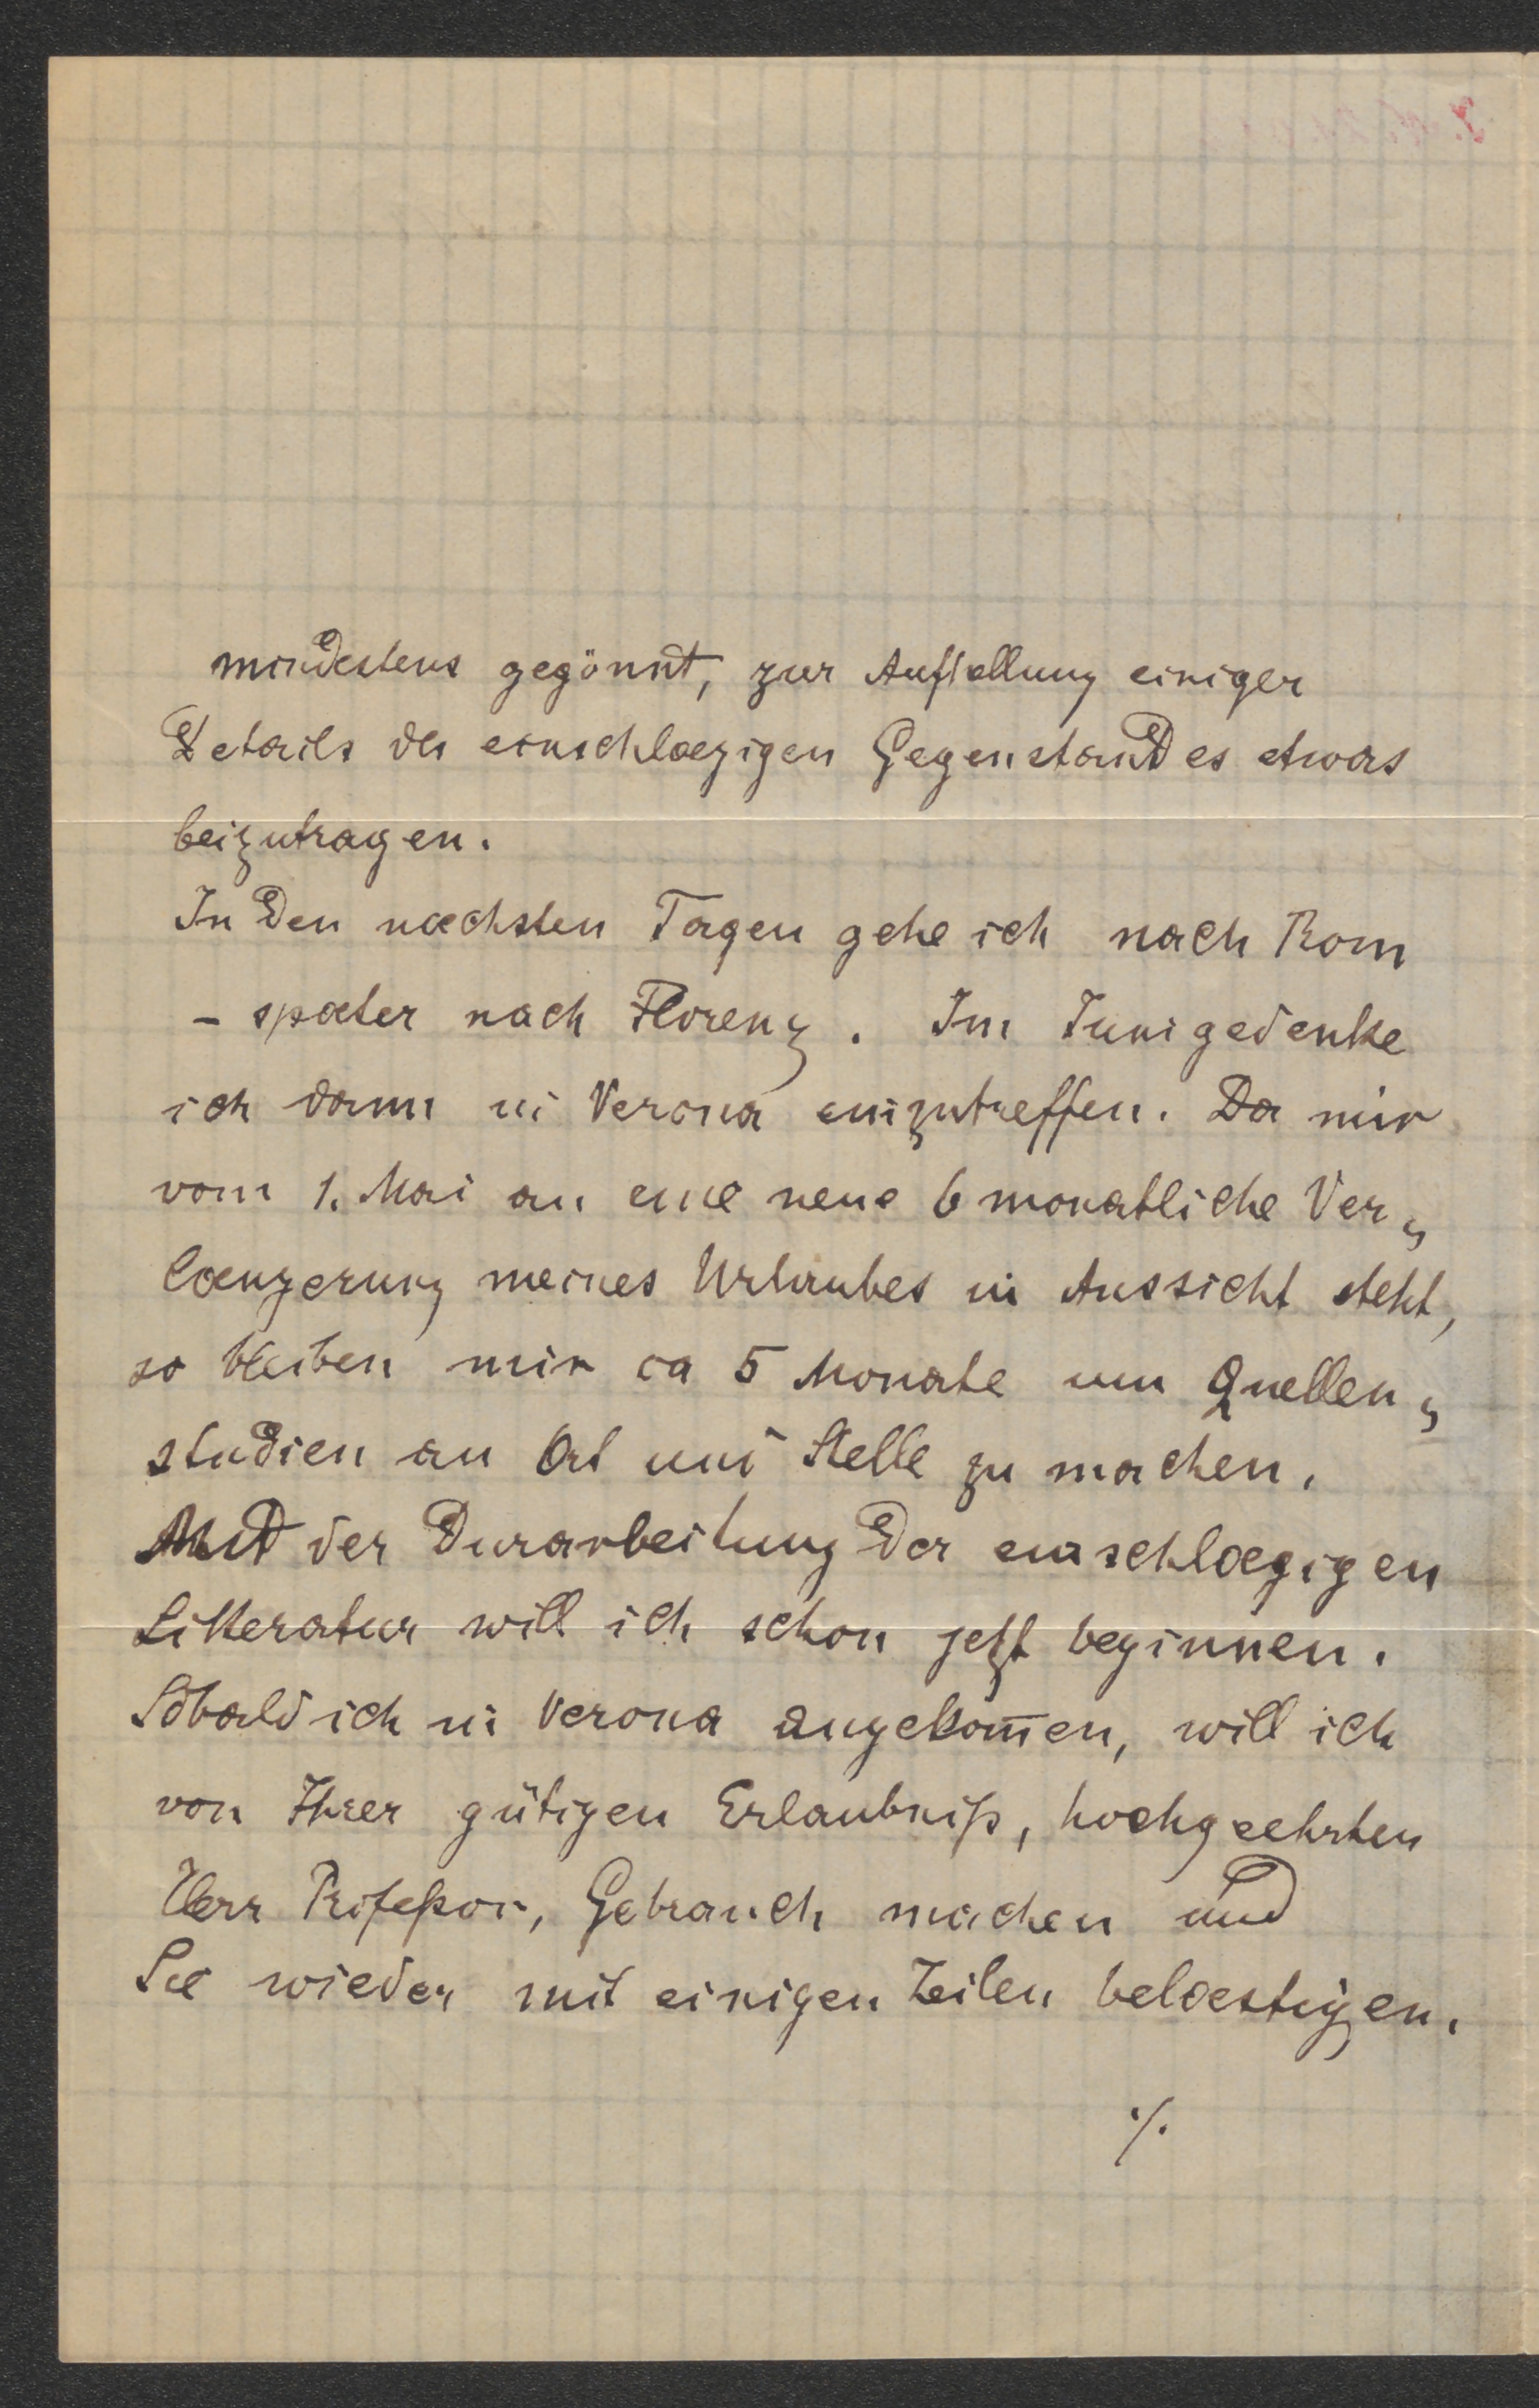 mindestens gegönnt, zur Aufhellung einiger
Details des einschlaegigen Gegenstandes etwas
beizutragen.
In den naechsten Tagen gehe ich nach Rom
- spaeter nach Florenz. Im Juni gedenke
ich dann in Verona einzutreffen. Da mir
vom 1. Mai an eine neue 6 monatliche Ver=
laengerung meines Urlaubes in Aussicht steht,
so bleiben mir ca 5 Monate um Quellen=
studien an Ort und Stelle zu machen.
Mit der Durarbeitung der einschlaegigen
Litteratur will ich schon jetzt beginnen.
Sobald ich in Verona angekom̄en, will ich
von Ihrer gütigen Erlaubniß, hochgeehrten
Herr Profeßor, Gebrauch machen und
Sie wieder mit einigen Zeilen belaestigen.
·/.